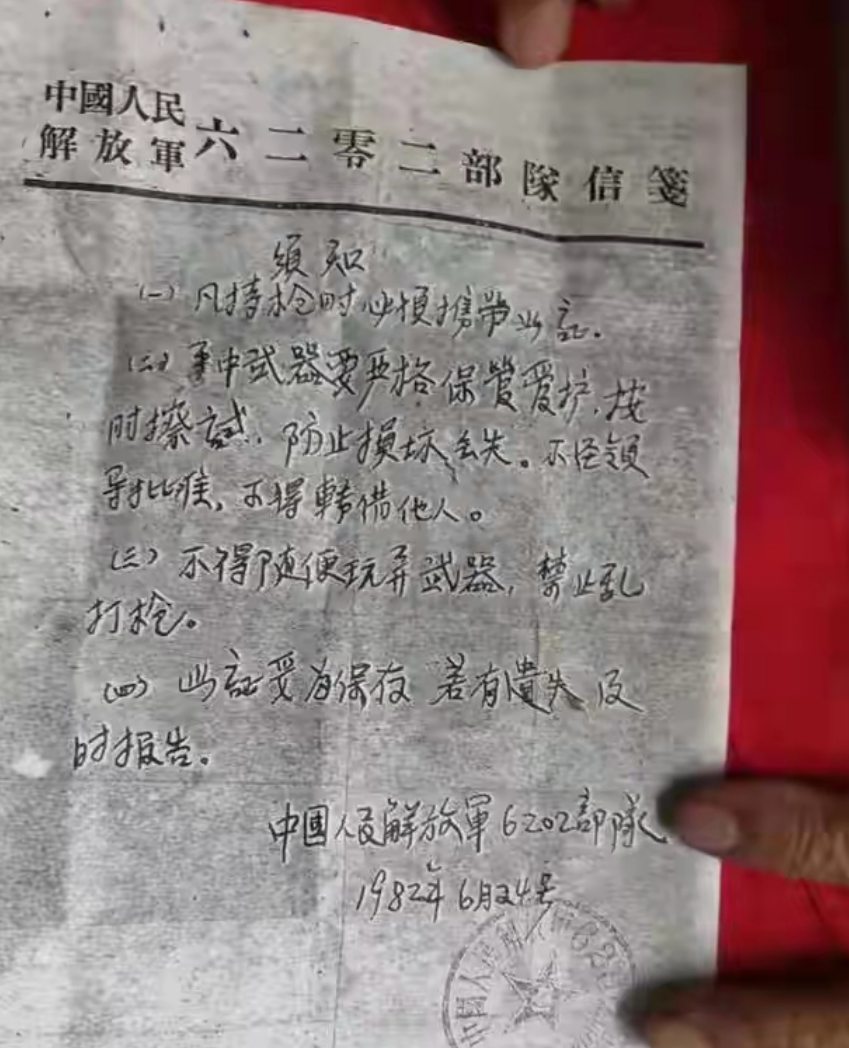 中國人民
解放軍六二零二部隊信箋
須知
(一) 凡持枪时必須携帶此証.
(二) 手中武器要严格保管爱护, 按
时擦試, 防止損坏、丢失。不经領
导批准, 不得轉借他人。
(三) 不得随便玩弄武器, 禁止乱
打枪。
(四) 此証要 保存 若有遺失 及
时报告。
中國人民解放軍6202部隊
1982年6月24号
中國人民解 620